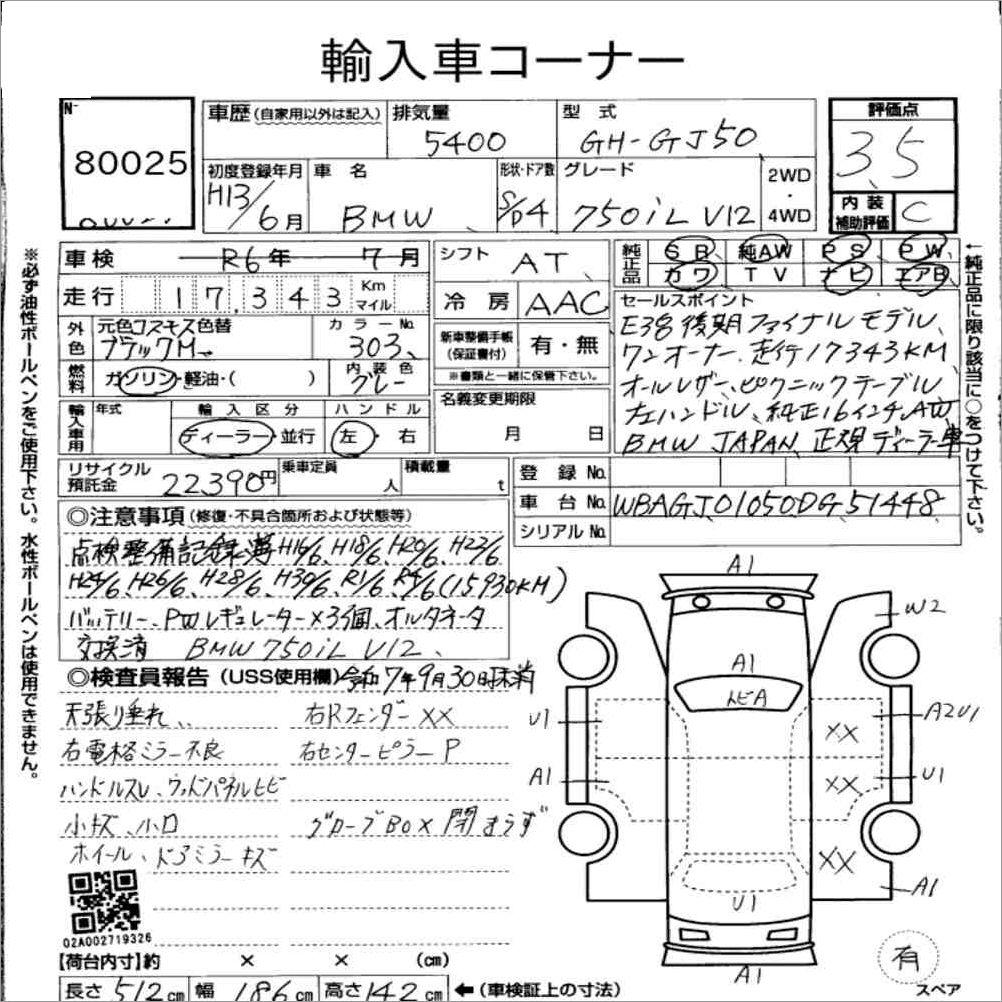 輸入車コーナー
N- 80025
車歴 (自家用以外は記入)
排気量 5400
型式 GH-GJ50
評価点 3.5
初度登録年月 H13/6月
車名 BMW
形状・ドア数 S/D4
グレード 750iL V12
2WD・4WD
内装補助評価 C
※必ず油性ボールペンをご使用下さい。水性ボールペンは使用できません。
車検 R6年 7月
シフト AT
純正品 SR 純AW PS PW
カワ TV ナビ エアB
←純正品に限り該当に○をつけて下さい。
走行 17,343 Km マイル
冷房 AAC
セールスポイント
E38後期ファイナルモデル、
ワンオーナー、走行17343KM
オールレザー、ピクニックテーブル
左ハンドル、純正16インチAW
BMW JAPAN、正規ディーラー車
外色 元色コスモス色替
ブラックM
カラーNo. 303
新車整備手帳(保証書付) 有・無
※書類と一緒に保管下さい。
燃料 ガソリン・軽油・( )
内装色 グレー
輸入車用 年式
輸入区分 ディーラー・並行
ハンドル 左・右
名義変更期限
月 日
リサイクル預託金 22390円
乗車定員 人
積載量 t
登録No.
車台No. WBAGJ01050DG51448
シリアルNo.
◎注意事項 (修復・不具合箇所および状態等)
点検整備記録簿H16/6、H18/6、H20/6、H22/6
H24/6、H26/6、H28/6、H30/6、R1/6、R4/6(15,930KM)
バッテリー、PWレギュレーター×3個、オルタネータ
交換済 BMW 750iL V12、
◎検査員報告 (USS使用欄) 令和7年9月30日抹消
天張り垂れ、、
右Rフェンダー XX
右電格ミラー不良
右センターピラー P
ハンドルスレ、ウッドパネルヒビ
小キズ、小凹
グローブBOX閉まらず
ホイール、ドアミラーキズ
02A002719326
A1
W2
A1
トビA
U1
XX
A2U1
A1
XX
U1
XX
A1
U1
A1
有
スペア
【荷台内寸】約 × × (cm)
長さ 512cm 幅 186cm 高さ 142cm ←(車検証上の寸法)